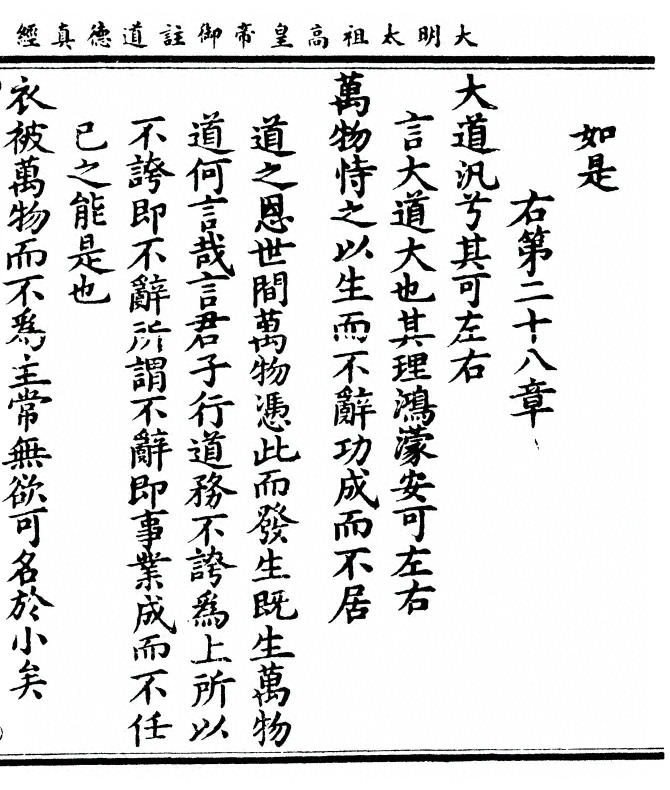 大明太祖高皇帝御註道德真經
如是
右第二十八章
大道汎兮其可左右
言大道大也其理鴻濛安可左右
萬物恃之以生而不辭功成而不居
道之恩世間萬物憑此而發生既生萬物
道何言哉言君子行道務不誇為上所以
不誇即不辭所謂不辭即事業成而不任
已之能是也
衣被萬物而不為主常無欲可名於小矣